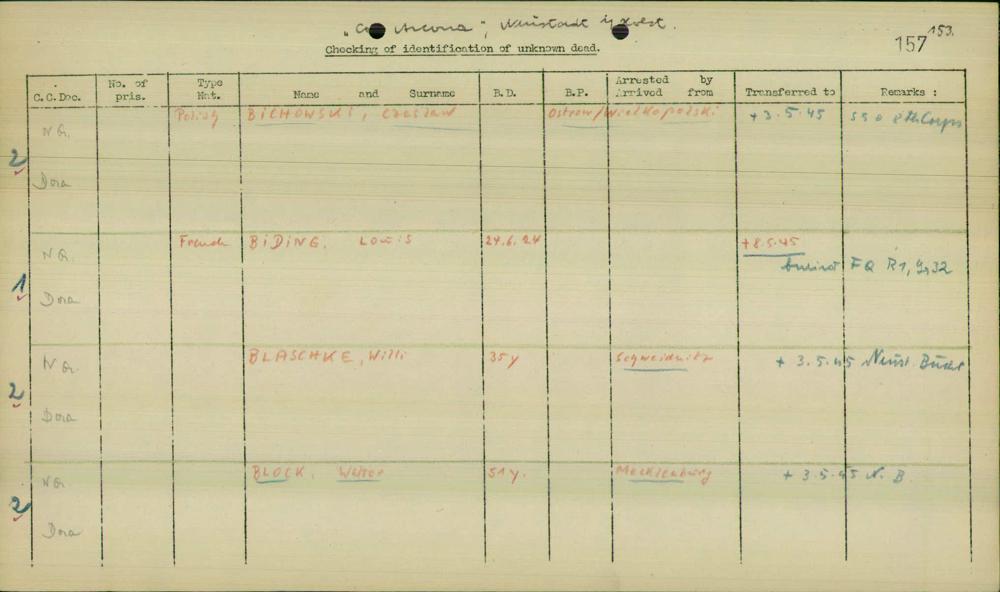 "C Arcona", Neustadt i/Holst.
153.
157
Checking of identification of unknown dead.
C.C.Doc. No. of pris. Type Nat. Name and Surname B.D. B.P. Arrested by Arrived from Transferred to Remarks :
2 NG. Dora Polish BICHOWSKI, Czeslaw Ostrow/Wielkopolski + 3.5.45 8th Corps
1 NG. Dora French BIDING, Louis 24.6.24 +8.5.45
buried FQ R1, Gr32
2 NG. Dora BLASCHKE, Willi 35y Schweidnitz + 3.5.45 Neust. Bucht
2 NG. Dora BLOCK, Walter 51y. Mecklenburg + 3.5.45 N. B.